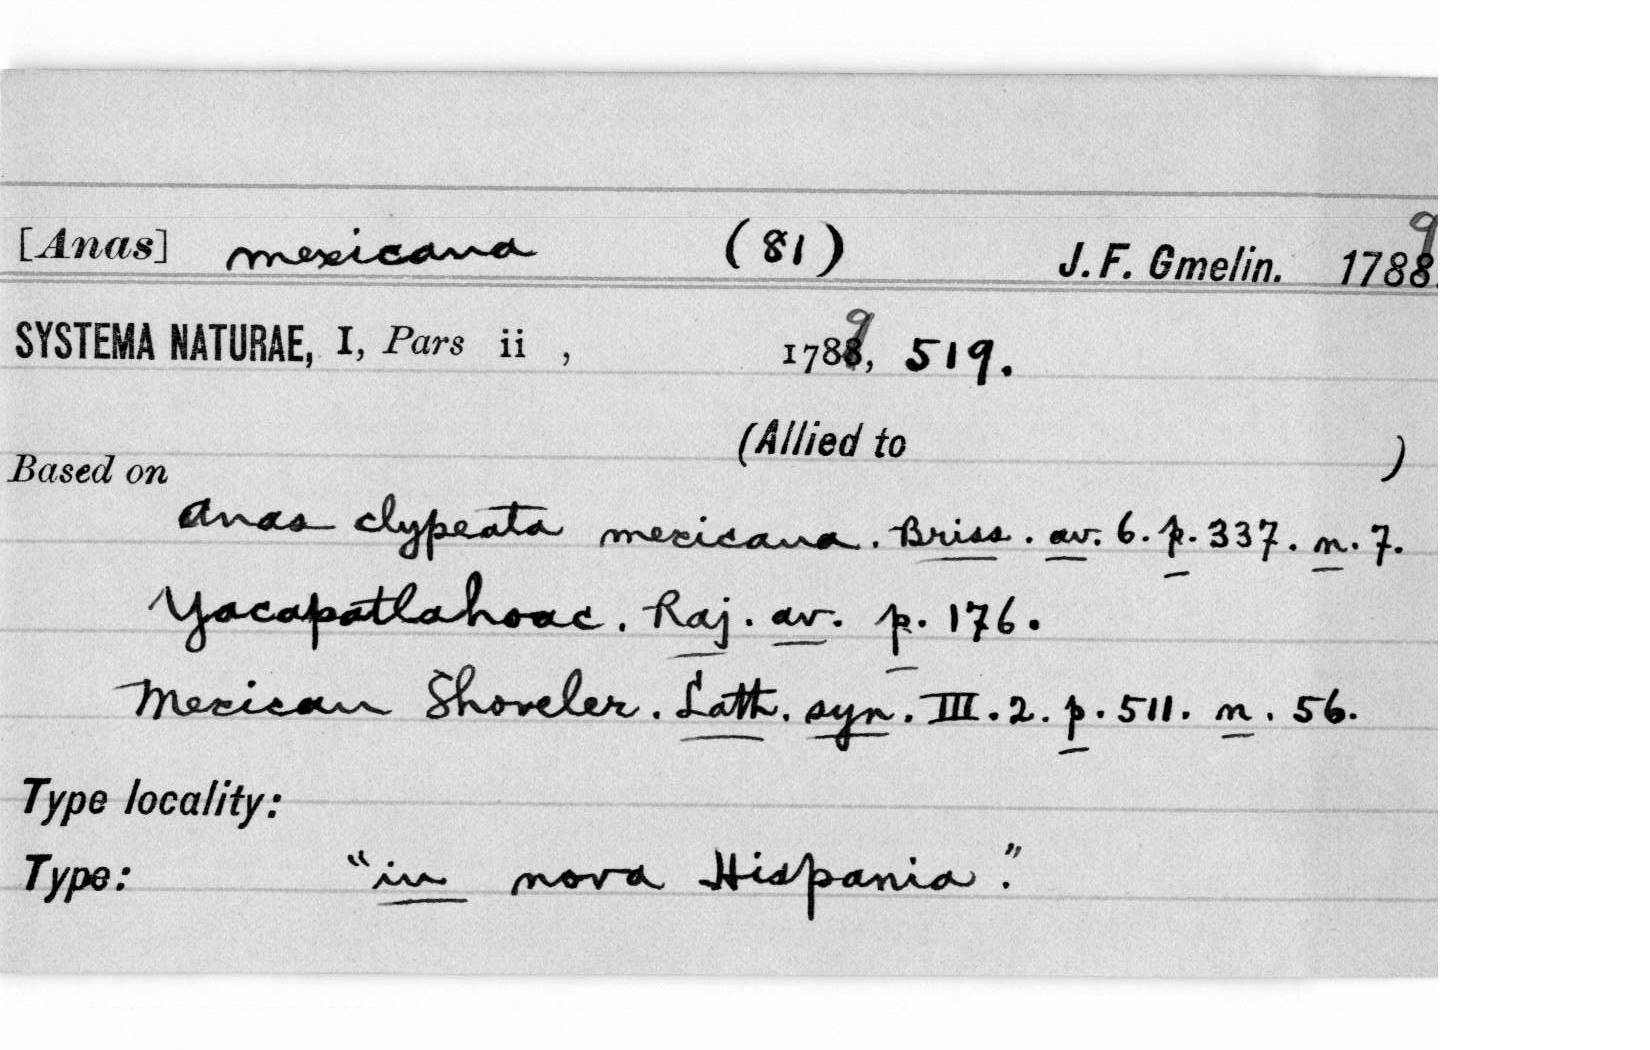 [Anas] mexicana (81) J. F. Gmelin. 1789.
SYSTEMA NATURAE, I, Pars ii , 1789, 519.
(Allied to )
Based on
Anas clypeata mexicana. Briss. av. 6. p. 337. n. 7.
Yacapatlahoac. Raj. av. p. 176.
Mexican Shoveler. Lath. syn. III. 2. p. 511. n. 56.
Type locality:
Type: "in nova Hispania."